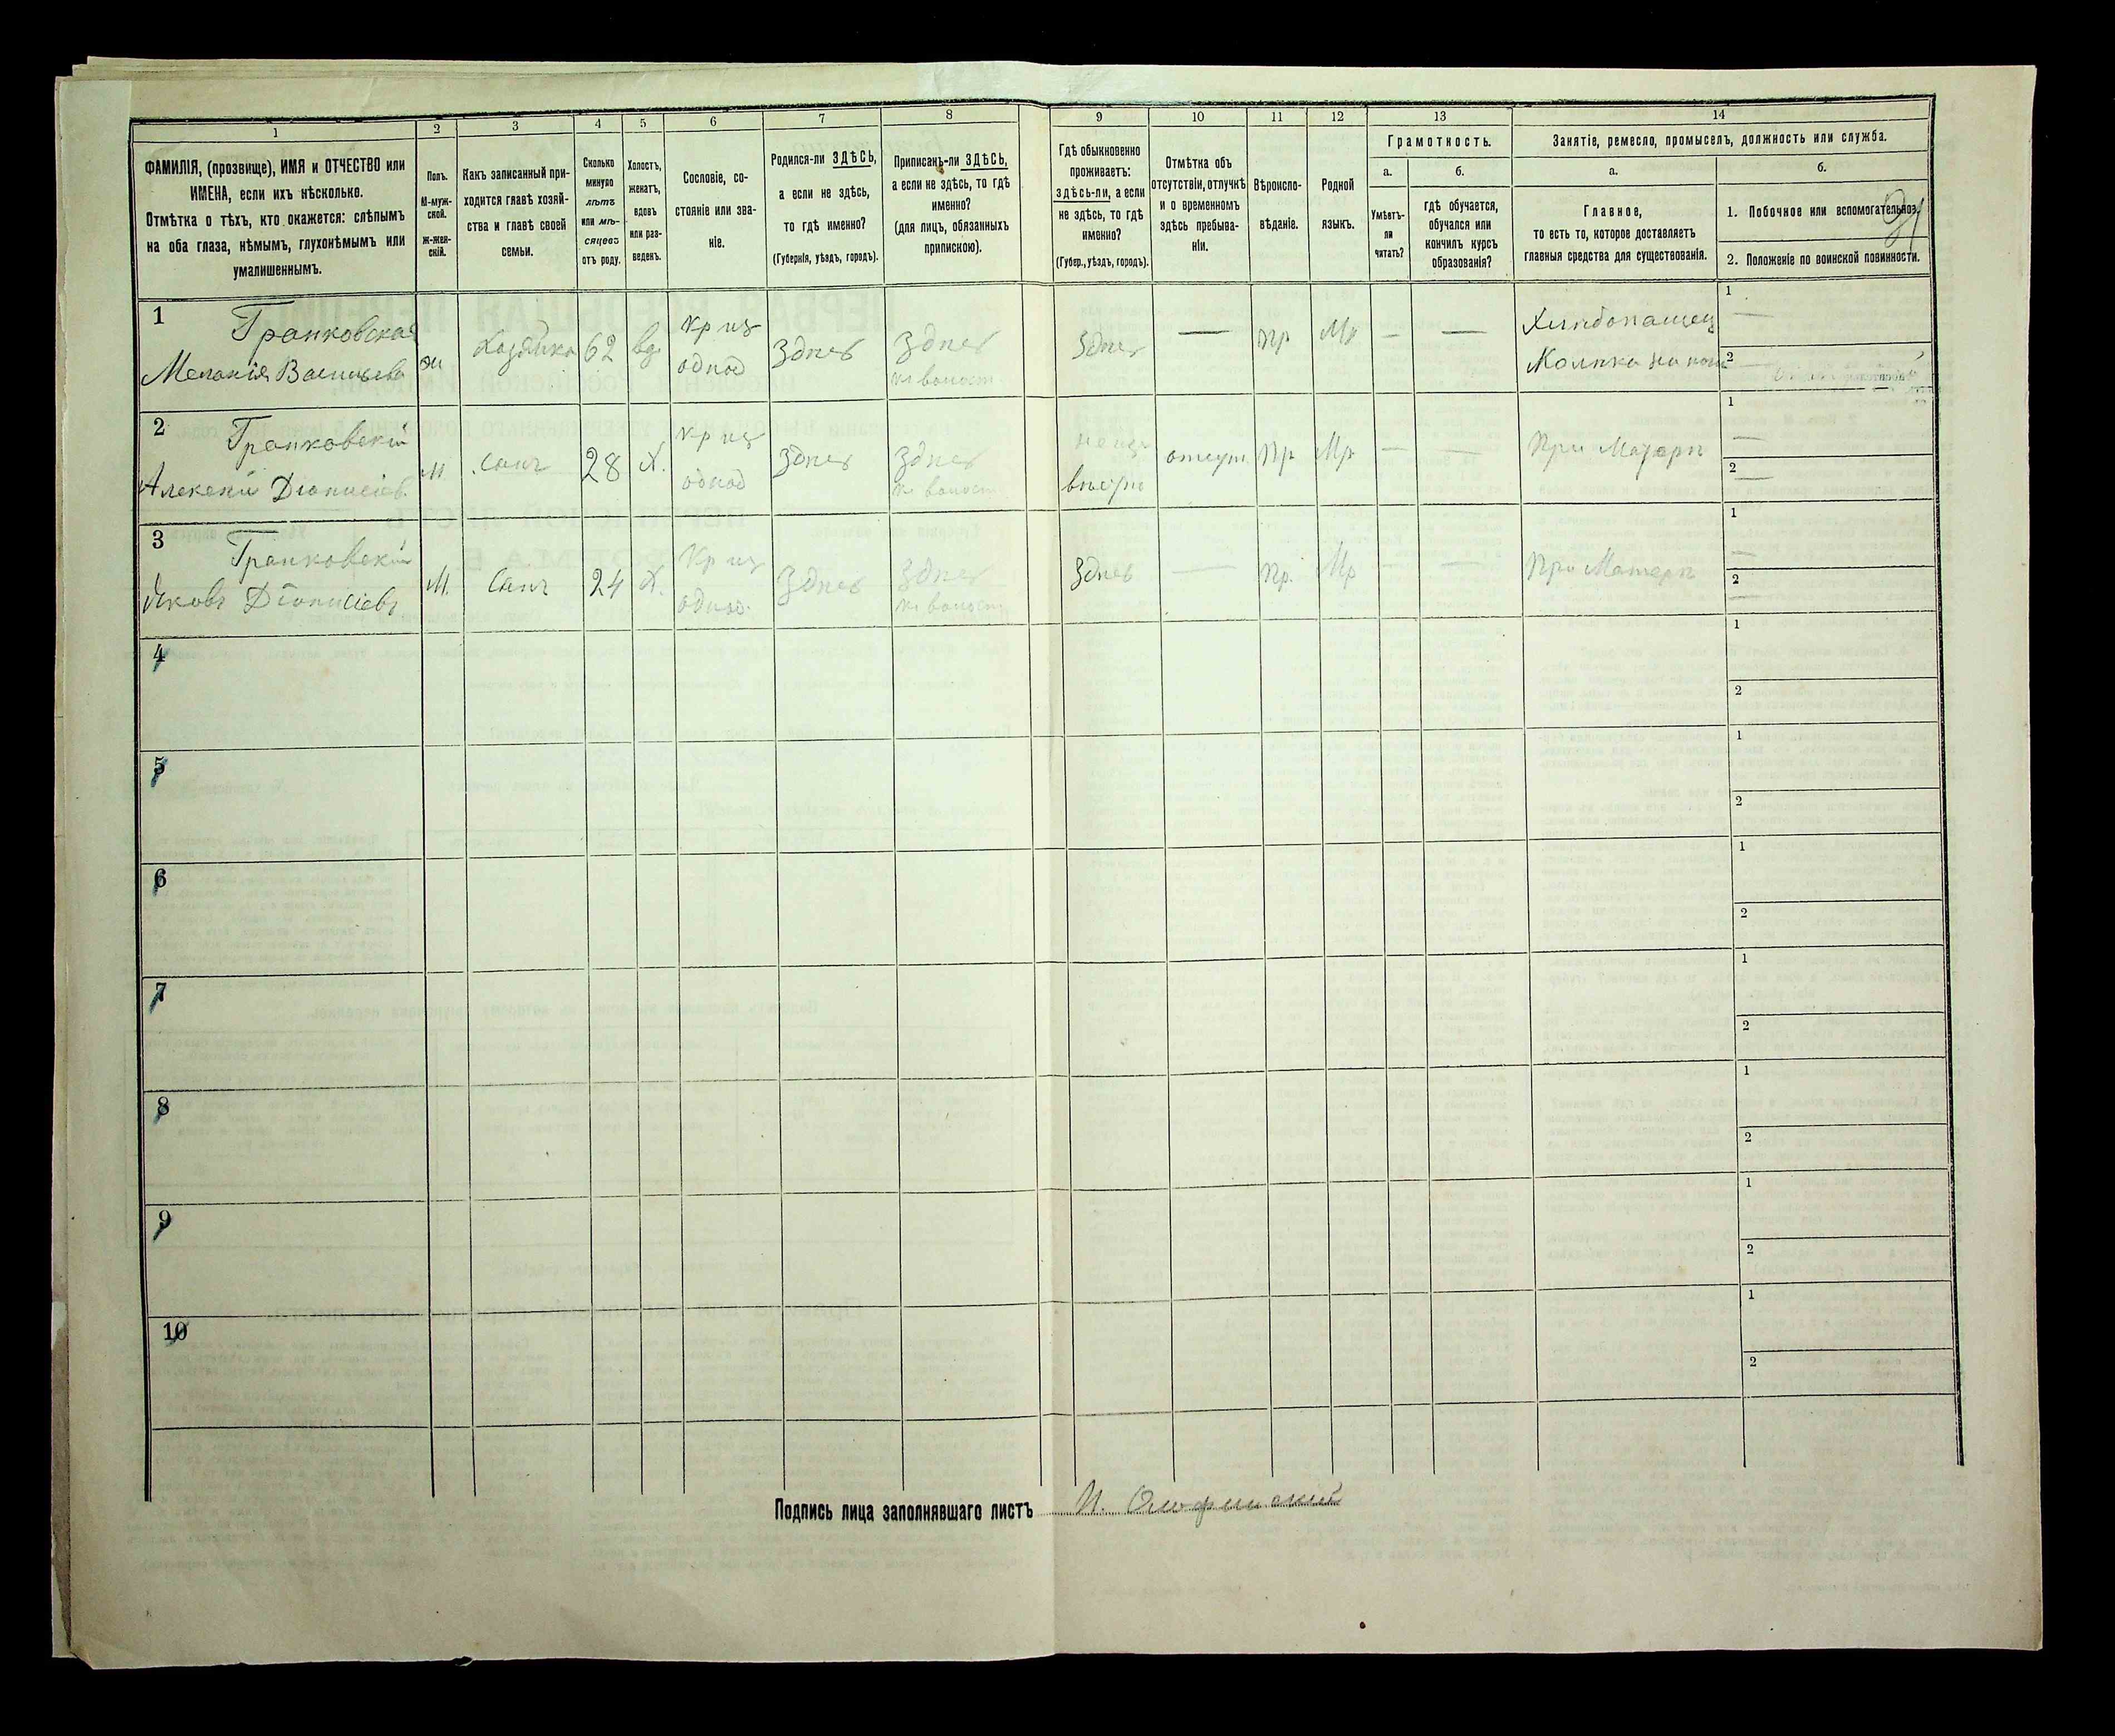 1 2 3 4 5 6 7 8 9 10 11 12 13 14
ФАМИЛІЯ, (прозвище), ИМЯ и ОТЧЕСТВО или
ИМЕНА, если ихъ нѣсколько.
Отмѣтка о тѣхъ, кто окажется: слѣпымъ
на оба глаза, нѣмымъ, глухонѣмымъ или
умалишеннымъ.
Полъ.
М-муж-
ской.
Ж-жен-
скій.
Какъ записанный при-
ходится главѣ хозяй-
ства и главѣ своей
семьи.
Сколько
минуло
лѣтъ
или мѣ-
сяцевъ
отъ роду.
Холостъ,
женатъ,
вдовъ
или раз-
веденъ.
Сословіе, со-
стояніе или зва-
ніе.
Родился-ли ЗДѢСЬ,
а если не здѣсь,
то гдѣ именно?
(Губернія, уѣздъ, городъ).
Приписанъ-ли ЗДѢСЬ,
а если не здѣсь, то гдѣ
именно?
(для лицъ, обязанныхъ
припискою).
Гдѣ обыкновенно
проживаетъ:
здѣсь-ли, а если
не здѣсь, то гдѣ
именно?
(Губер., уѣздъ, городъ).
Отмѣтка объ
отсутствіи, отлучкѣ
и о временномъ
здѣсь пребыва-
ніи.
Вѣроиспо-
вѣданіе.
Родной
языкъ.
Грамотность.
а.
Умѣетъ-
ли
читать?
б.
гдѣ обучается,
обучался или
кончилъ курсъ
образованія?
Занятіе, ремесло, промыселъ, должность или служба.
а.
Главное,
то есть то, которое доставляетъ
главныя средства для существованія.
б.
1. Побочное или вспомогательное.
2. Положеніе по воинской повинности.
1
Грапковская
Меланія Васильева
ж
Хозяйка
62
вд
Кр из
однод
Здѣсь
Здѣсь
Здѣсь
—
Пр
Мр
—
—
1
—
2
2
Грапковскій
Алексѣй Діонисіев
М
Сынъ
28
Х.
Кр из
однод
Здѣсь
Здѣсь
отсут.
Пр
Мр
—
—
При Матери
1
—
2
—
3
Грапковскій
Яковъ Діонисіевъ
М.
Сынъ
24
Х.
Кр из
однод.
Здѣсь
Здѣсь
Здѣсь
—
Пр.
Мр
—
—
При Матери
1
—
2
—
4
1
2
5
1
2
6
1
2
7
1
2
8
1
2
9
1
2
10
1
2
Подпись лица заполнявшаго листъ